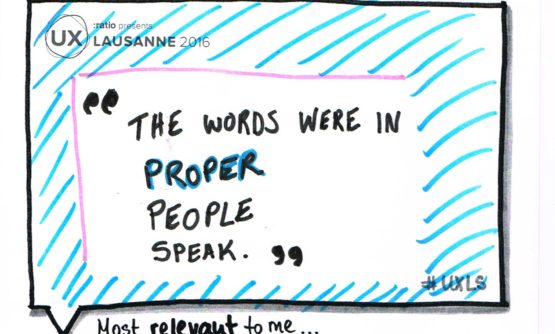 :ratio presents
UX LAUSANNE 2016
“ THE WORDS WERE IN
PROPER
PEOPLE
SPEAK. ”
#UXLS
Most relevant to me...